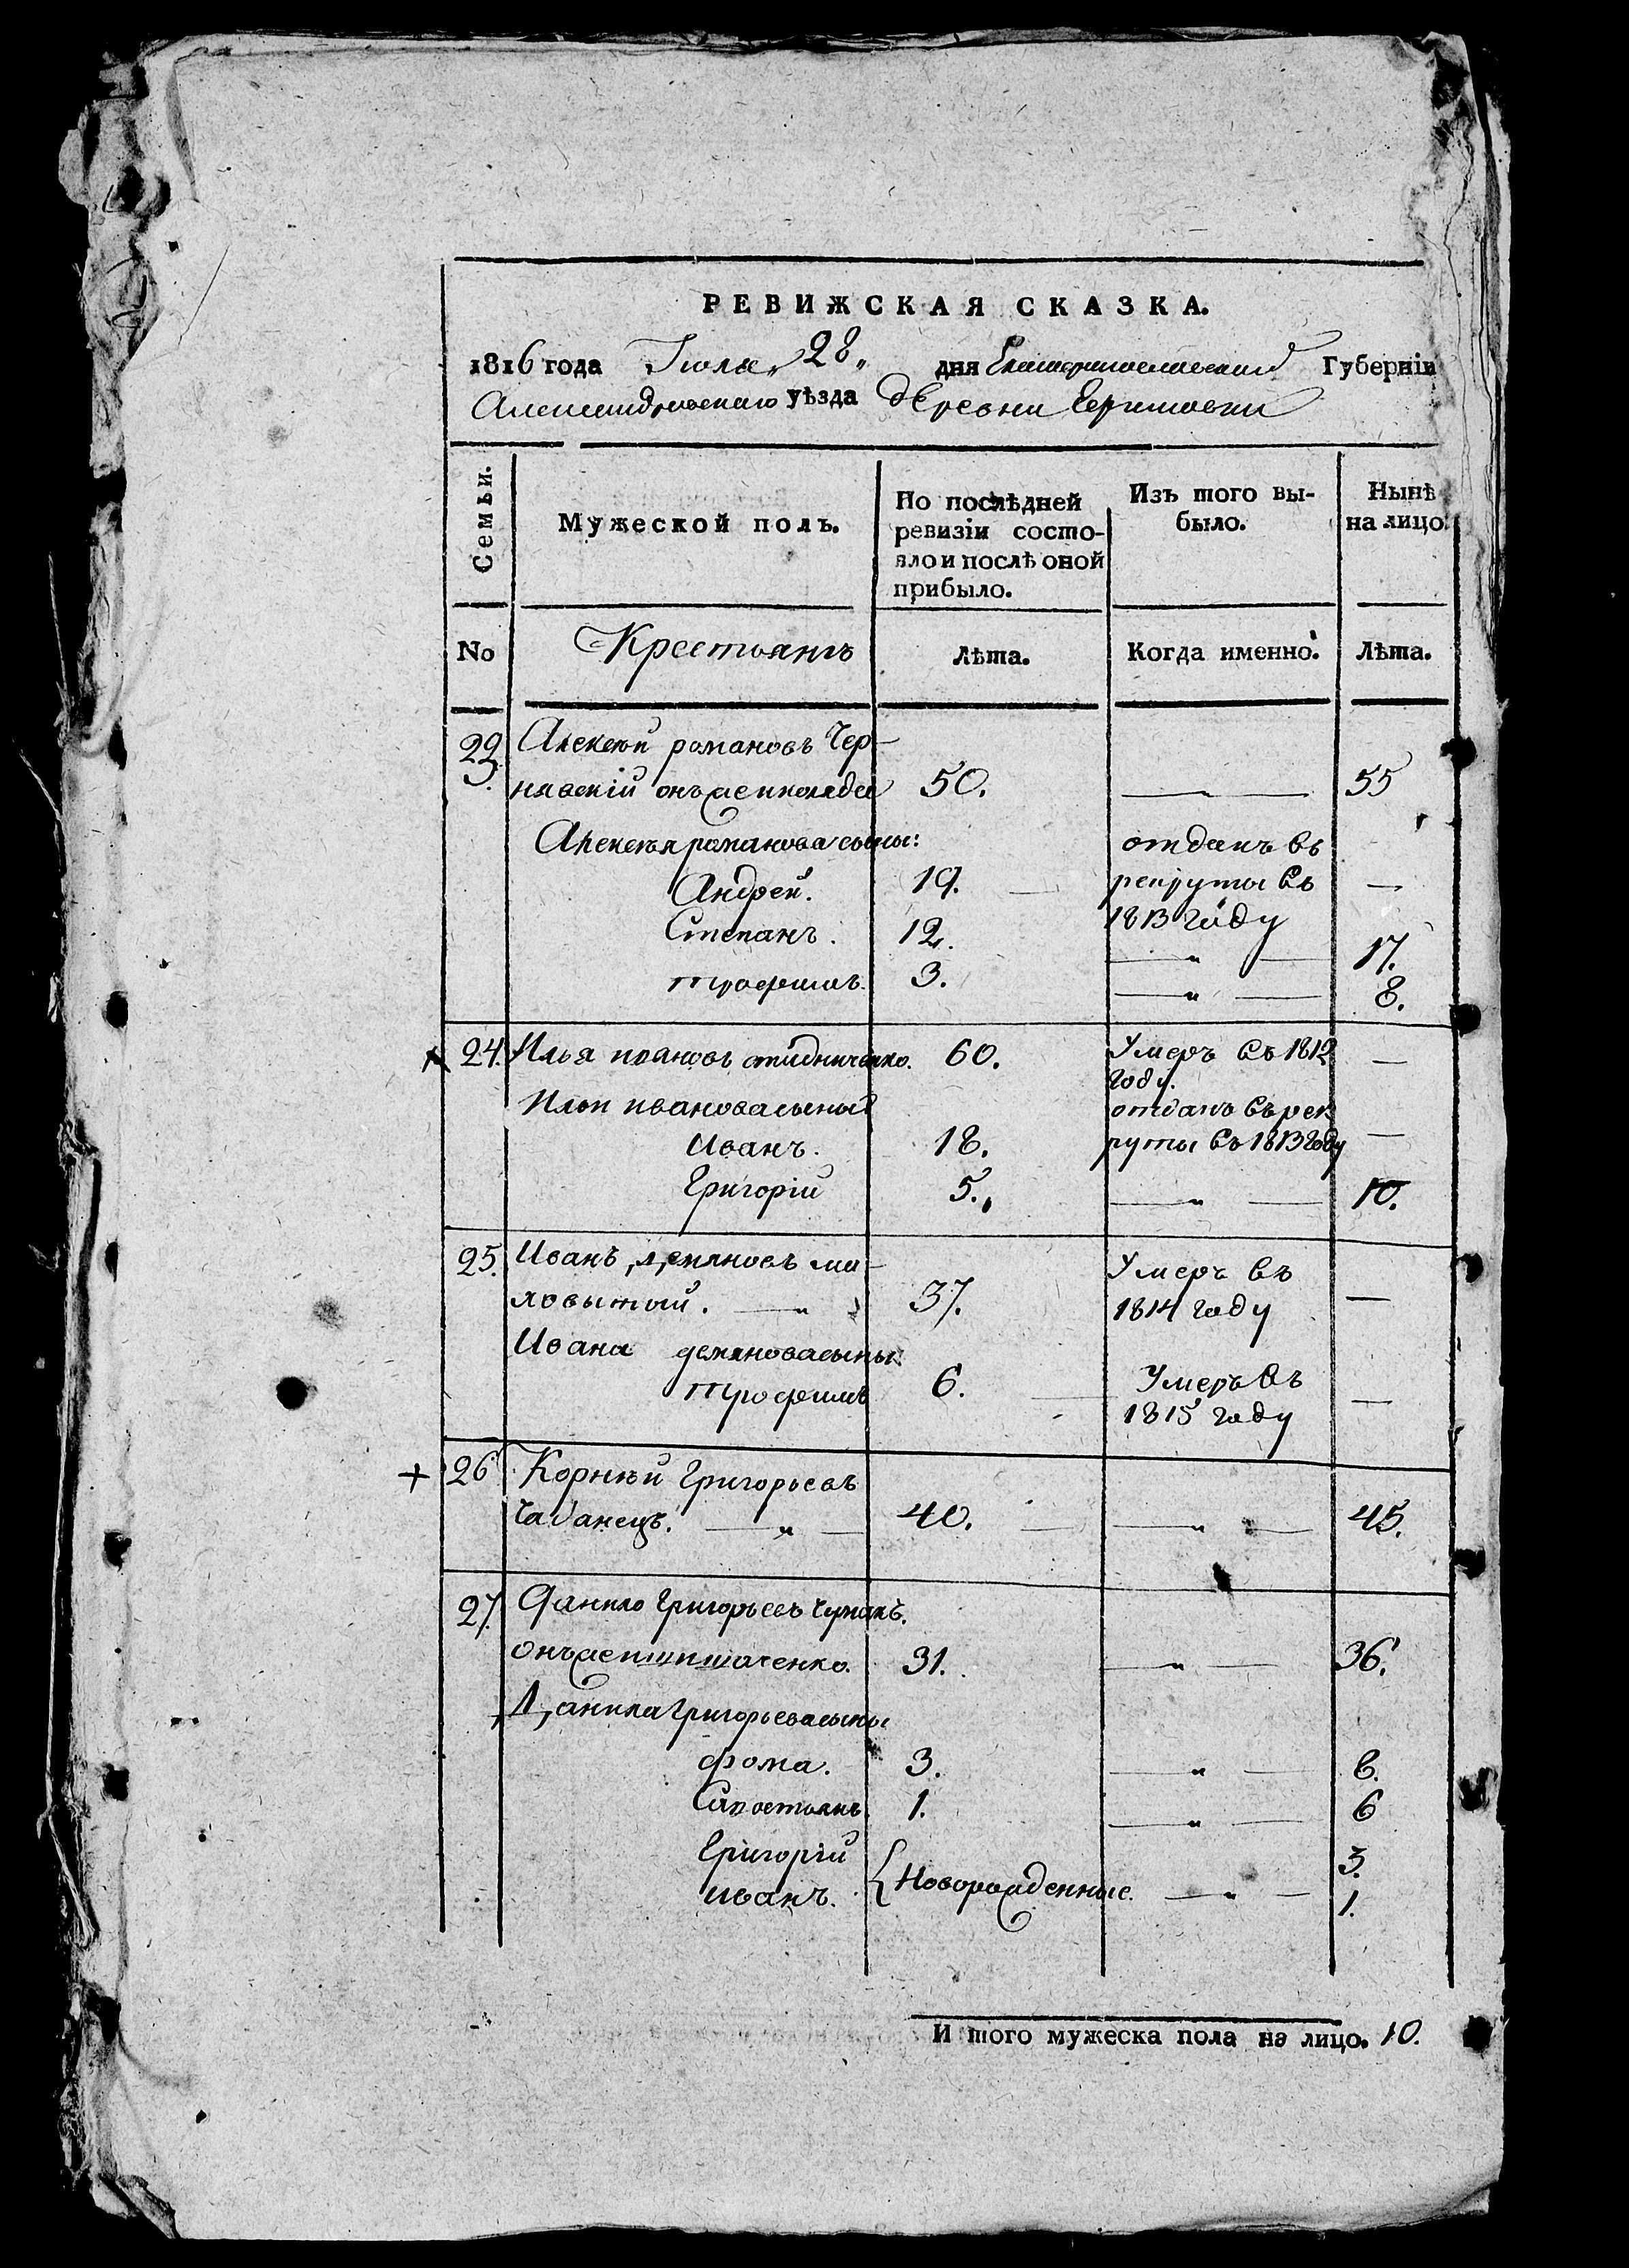 РЕВИЖСКАЯ СКАЗКА.
1816 года Июля „28„ дня Екатеринославской Губерніи
Александровскаго уѣзда деревни
Семьи. Мужеской полъ. По послѣдней ревизіи состо- Изъ того вы- Нынѣ
яло и послѣ оной прибыло. было. на лицо.
No Крестьянъ Лѣта. Когда именно. Лѣта.
Алексѣй романовъ Чер-
нявскій онъже 50. — 55
Алексѣя романова сыны: отданъ въ
Андрей. 19. — рекруты въ —
1813 году
Степанъ. 12. — „ — 17.
трофимъ. 3. — „ — 8.
24. Илья ивановъ 60. Умеръ въ 1812 —
году.
Ильи иванова сыны отданъ въ рек
Иванъ. 18. руты въ 1813 году —
Григорій 5. — „ — 10.
25. Иванъ демяновъ ма-
ловытый. — „ 37. Умеръ въ —
1814 году
Ивана демянова сыны
трофимъ 6. — Умеръ въ —
1815 году
+ 26 Корнѣй Григорьевъ
Чабанецъ. — „ — 40. — — „ — 45.
27. Данило Григорьевъ Чумакъ.
онъже 31. — „ — 36.
Данила Григорьева сыны
фома. 3. — „ — 8.
1. — „ — 6
Григорій 3.
иванъ. { Новорожденные. — „ — 1.
И того мужеска пола на лицо. 10.